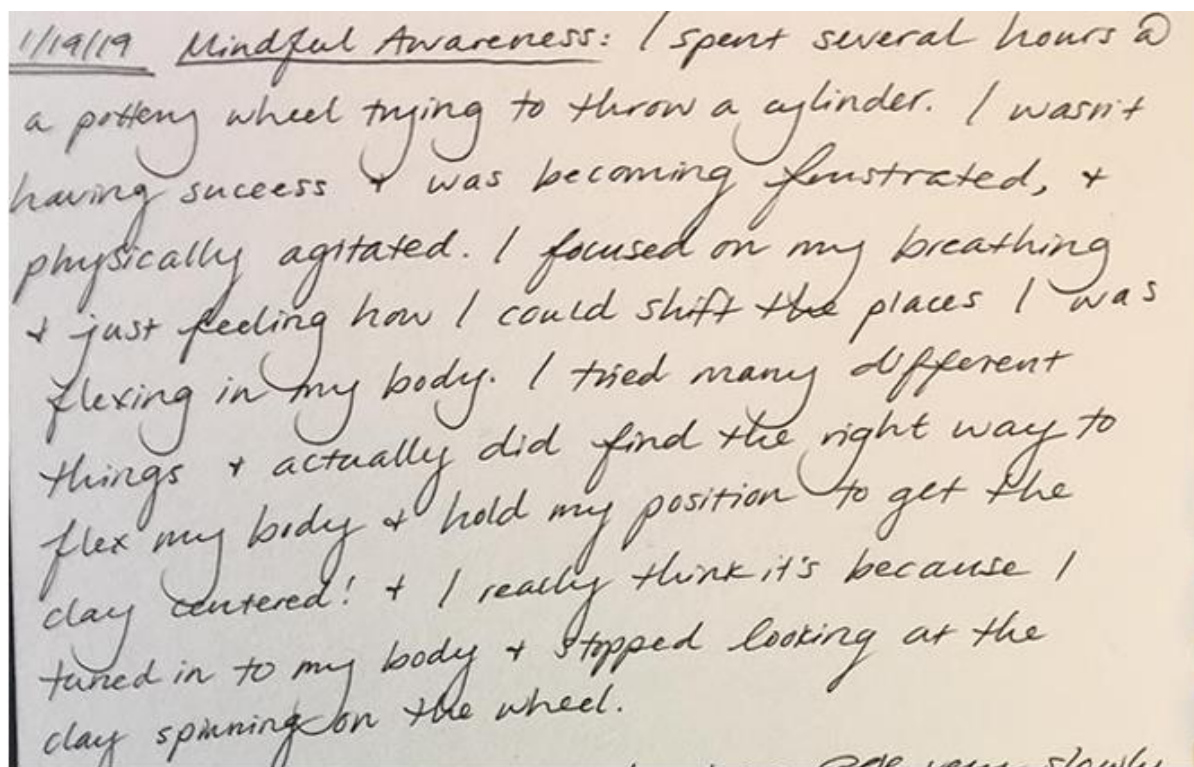 1/19/19 Mindful Awareness: I spent several hours @
a pottery wheel trying to throw a cylinder. I wasn't
having success + was becoming frustrated, +
physically agitated. I focused on my breathing
+ just feeling how I could shift the places I was
flexing in my body. I tried many different
things + actually did find the right way to
flex my body + hold my position to get the
clay centered! + I really think it's because I
tuned in to my body + stopped looking at the
clay spinning on the wheel.
very slowly